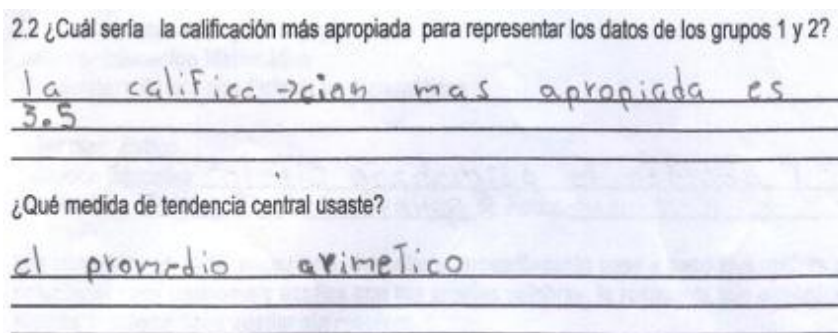 2.2 ¿Cuál sería la calificación más apropiada para representar los datos de los grupos 1 y 2?
la califica->cion mas apropiada es
3.5
¿Qué medida de tendencia central usaste?
el promedio arimetico